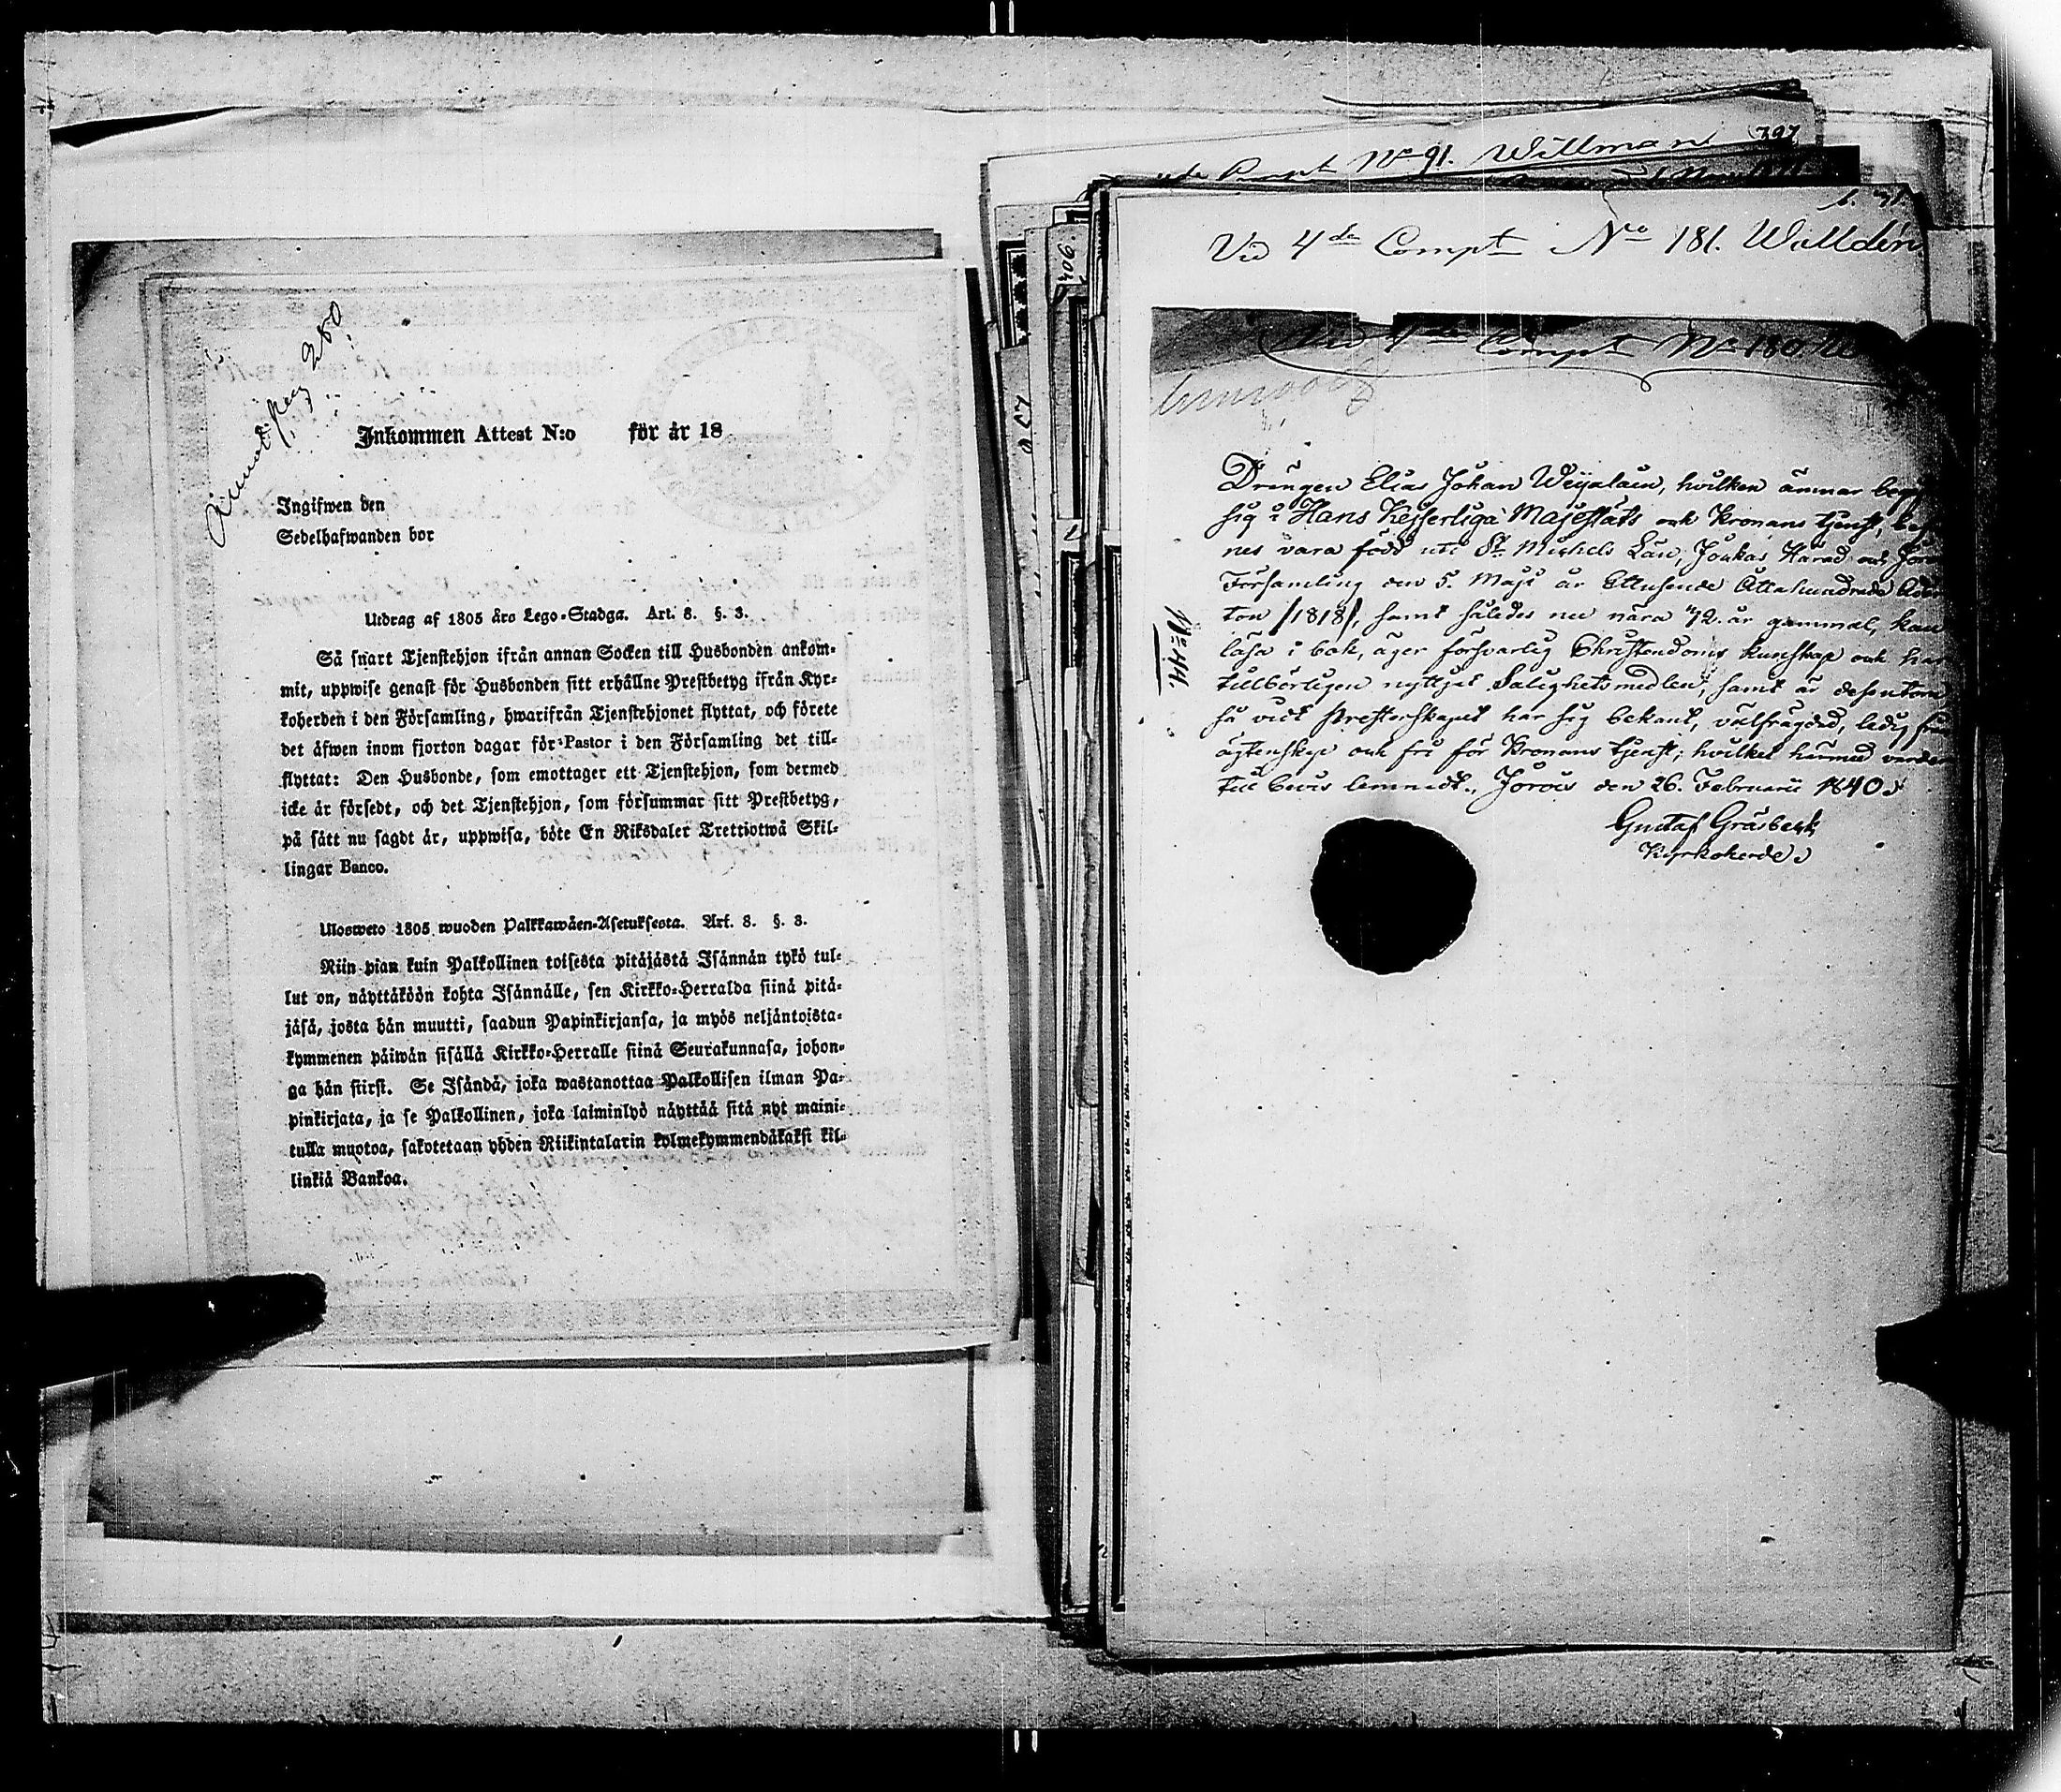 Annot. pag 280
Inkommen Attest N:o för år 18
Ingifwen den
Sedelhafwanden bor
Utdrag af 1805 års Lego-Stadga. Art. 8. §. 3.
Så snart Tjenstehjon ifrån annan Socken till Husbonden ankom-
mit, uppwise genast för Husbonden sitt erhållne Prestbetyg ifrån Kyr-
koherden i den Församling, hwarifrån Tjenstehjonet flyttat, och förete
det äfwen inom fjorton dagar för Pastor i den Församling det till-
flyttat: Den Husbonde, som emottager ett Tjenstehjon, som dermed
icke är försedt, och det Tjenstehjon, som försummar sitt Prestbetyg,
på sätt nu sagdt är, uppwisa, böte En Riksdaler Trettiotwå Skil-
lingar Banco.
Ulosweto 1805 wuoden Palkkawäen-Asetuksesta. Art. 8. §. 3.
Niin pian kuin Palkollinen toisesta pitäjästä Isännän tykö tul-
lut on, näyttäköön kohta Isännälle, sen Kirkko-Herralda siinä pitä-
jäsä, josta hän muutti, saadun Papinkirjansa, ja myös neljäntoista-
kymmenen päiwän sisällä Kirkko-Herralle siinä Seurakunnasa, johon-
ga hän siirst. Se Isändä, joka wastanottaa Palkollisen ilman Pa-
pinkirjata, ja se Palkollinen, joka laiminlyö näyttää sitä nyt maini-
tulla muotoa, sakotetaan yhden Riikintalarin kolmekymmendäkaksi kil-
linkiä Bankoa.
Compt No 91. Willman 397
Vid 4de Compt No 181. Walldén
Vid 4de Compt No 180
No 44.
Drängen Elias Johan Weijalain, hvilken ärnar
sig i Hans Kejserliga Majestäts och Kronans tjenst,
nes vara född uti St. Michels Län, Joukas Härad och
Församling den 5. Maji år Ettusende Åttahundrade
ton /1818/, samt således nu nära 22. år gammal, kan
läsa i bok, äger försvarlig Christendoms kunskap och har
tillbörligen nyttjat Salighetsmedlen, samt är dessutom,
så vidt Presterskapet har sig bekant, välfrägdad, ledig från
ägtenskap och fri för Kronans tjenst; hvilket härmed varder
till bevis lemnadt. Jorois den 26. Februarii 1840.
Gustaf Gräsbeck
Kyrkoherde